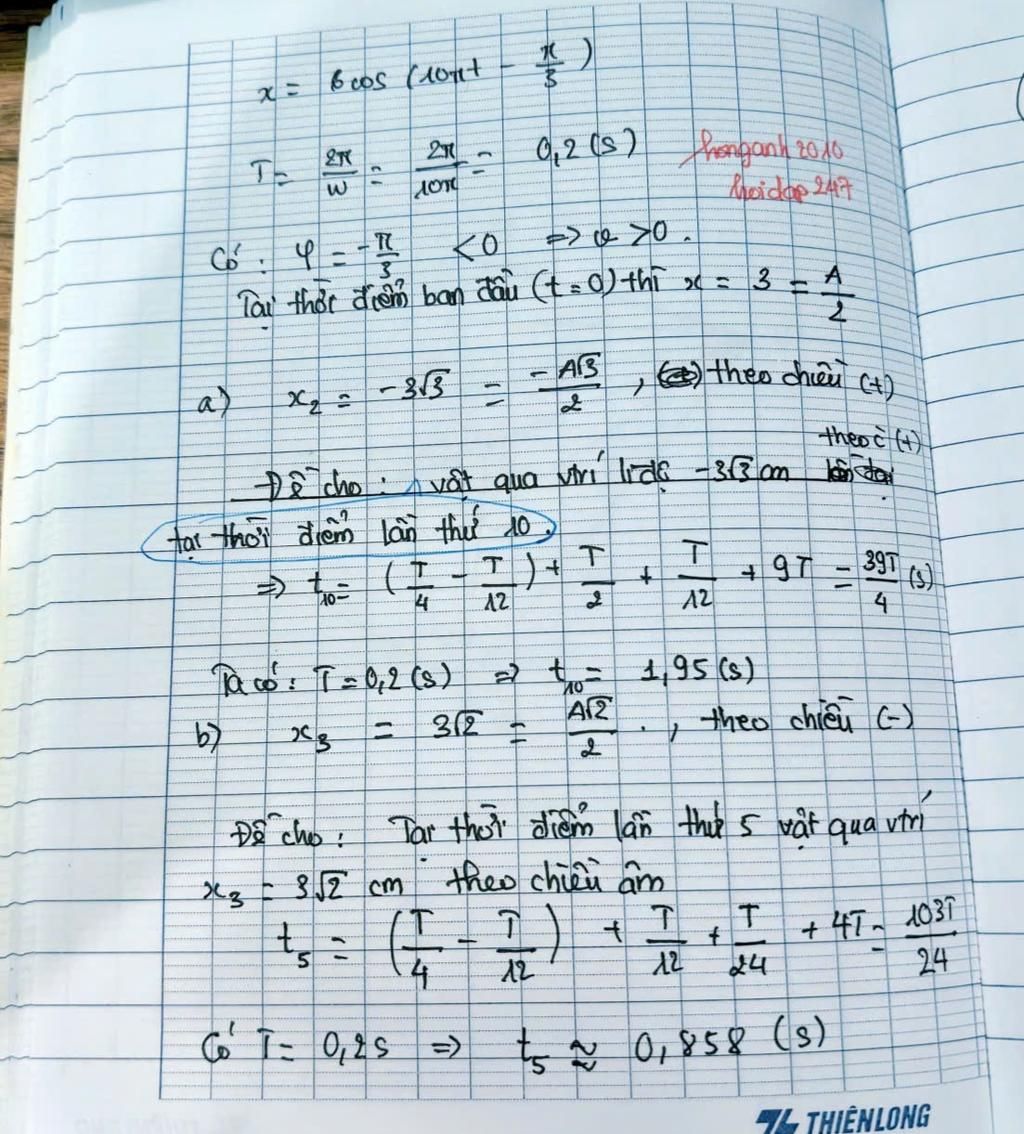 x = 6 cos (10πt - π/3)
T = 2π/ω = 2π/10π = 0,2 (s)
honganh 2010
hoidap 247
Có : φ = -π/3 < 0 => v > 0 .
Tại thời điểm ban đầu (t = 0) thì x = 3 = A/2
a) x₂ = -3√3 = -A√3/2 , theo chiều (+)
theo c (+)
Đề cho : vật qua vtrí li độ -3√3 cm
tại thời điểm lần thứ 10 .
=> t₁₀ = (T/4 - T/12) + T/2 + T/12 + 9T = 39T/4 (s)
Ta có : T = 0,2 (s) => t₁₀ = 1,95 (s)
b) x₃ = 3√2 = A√2/2 . , theo chiều (-)
Đề cho : Tại thời điểm lần thứ 5 vật qua vtrí
x₃ = 3√2 cm theo chiều âm
t₅ = (T/4 - T/12) + T/12 + T/24 + 4T = 103T/24
Có T = 0,2s => t₅ ≈ 0,858 (s)
THIÊN LONG